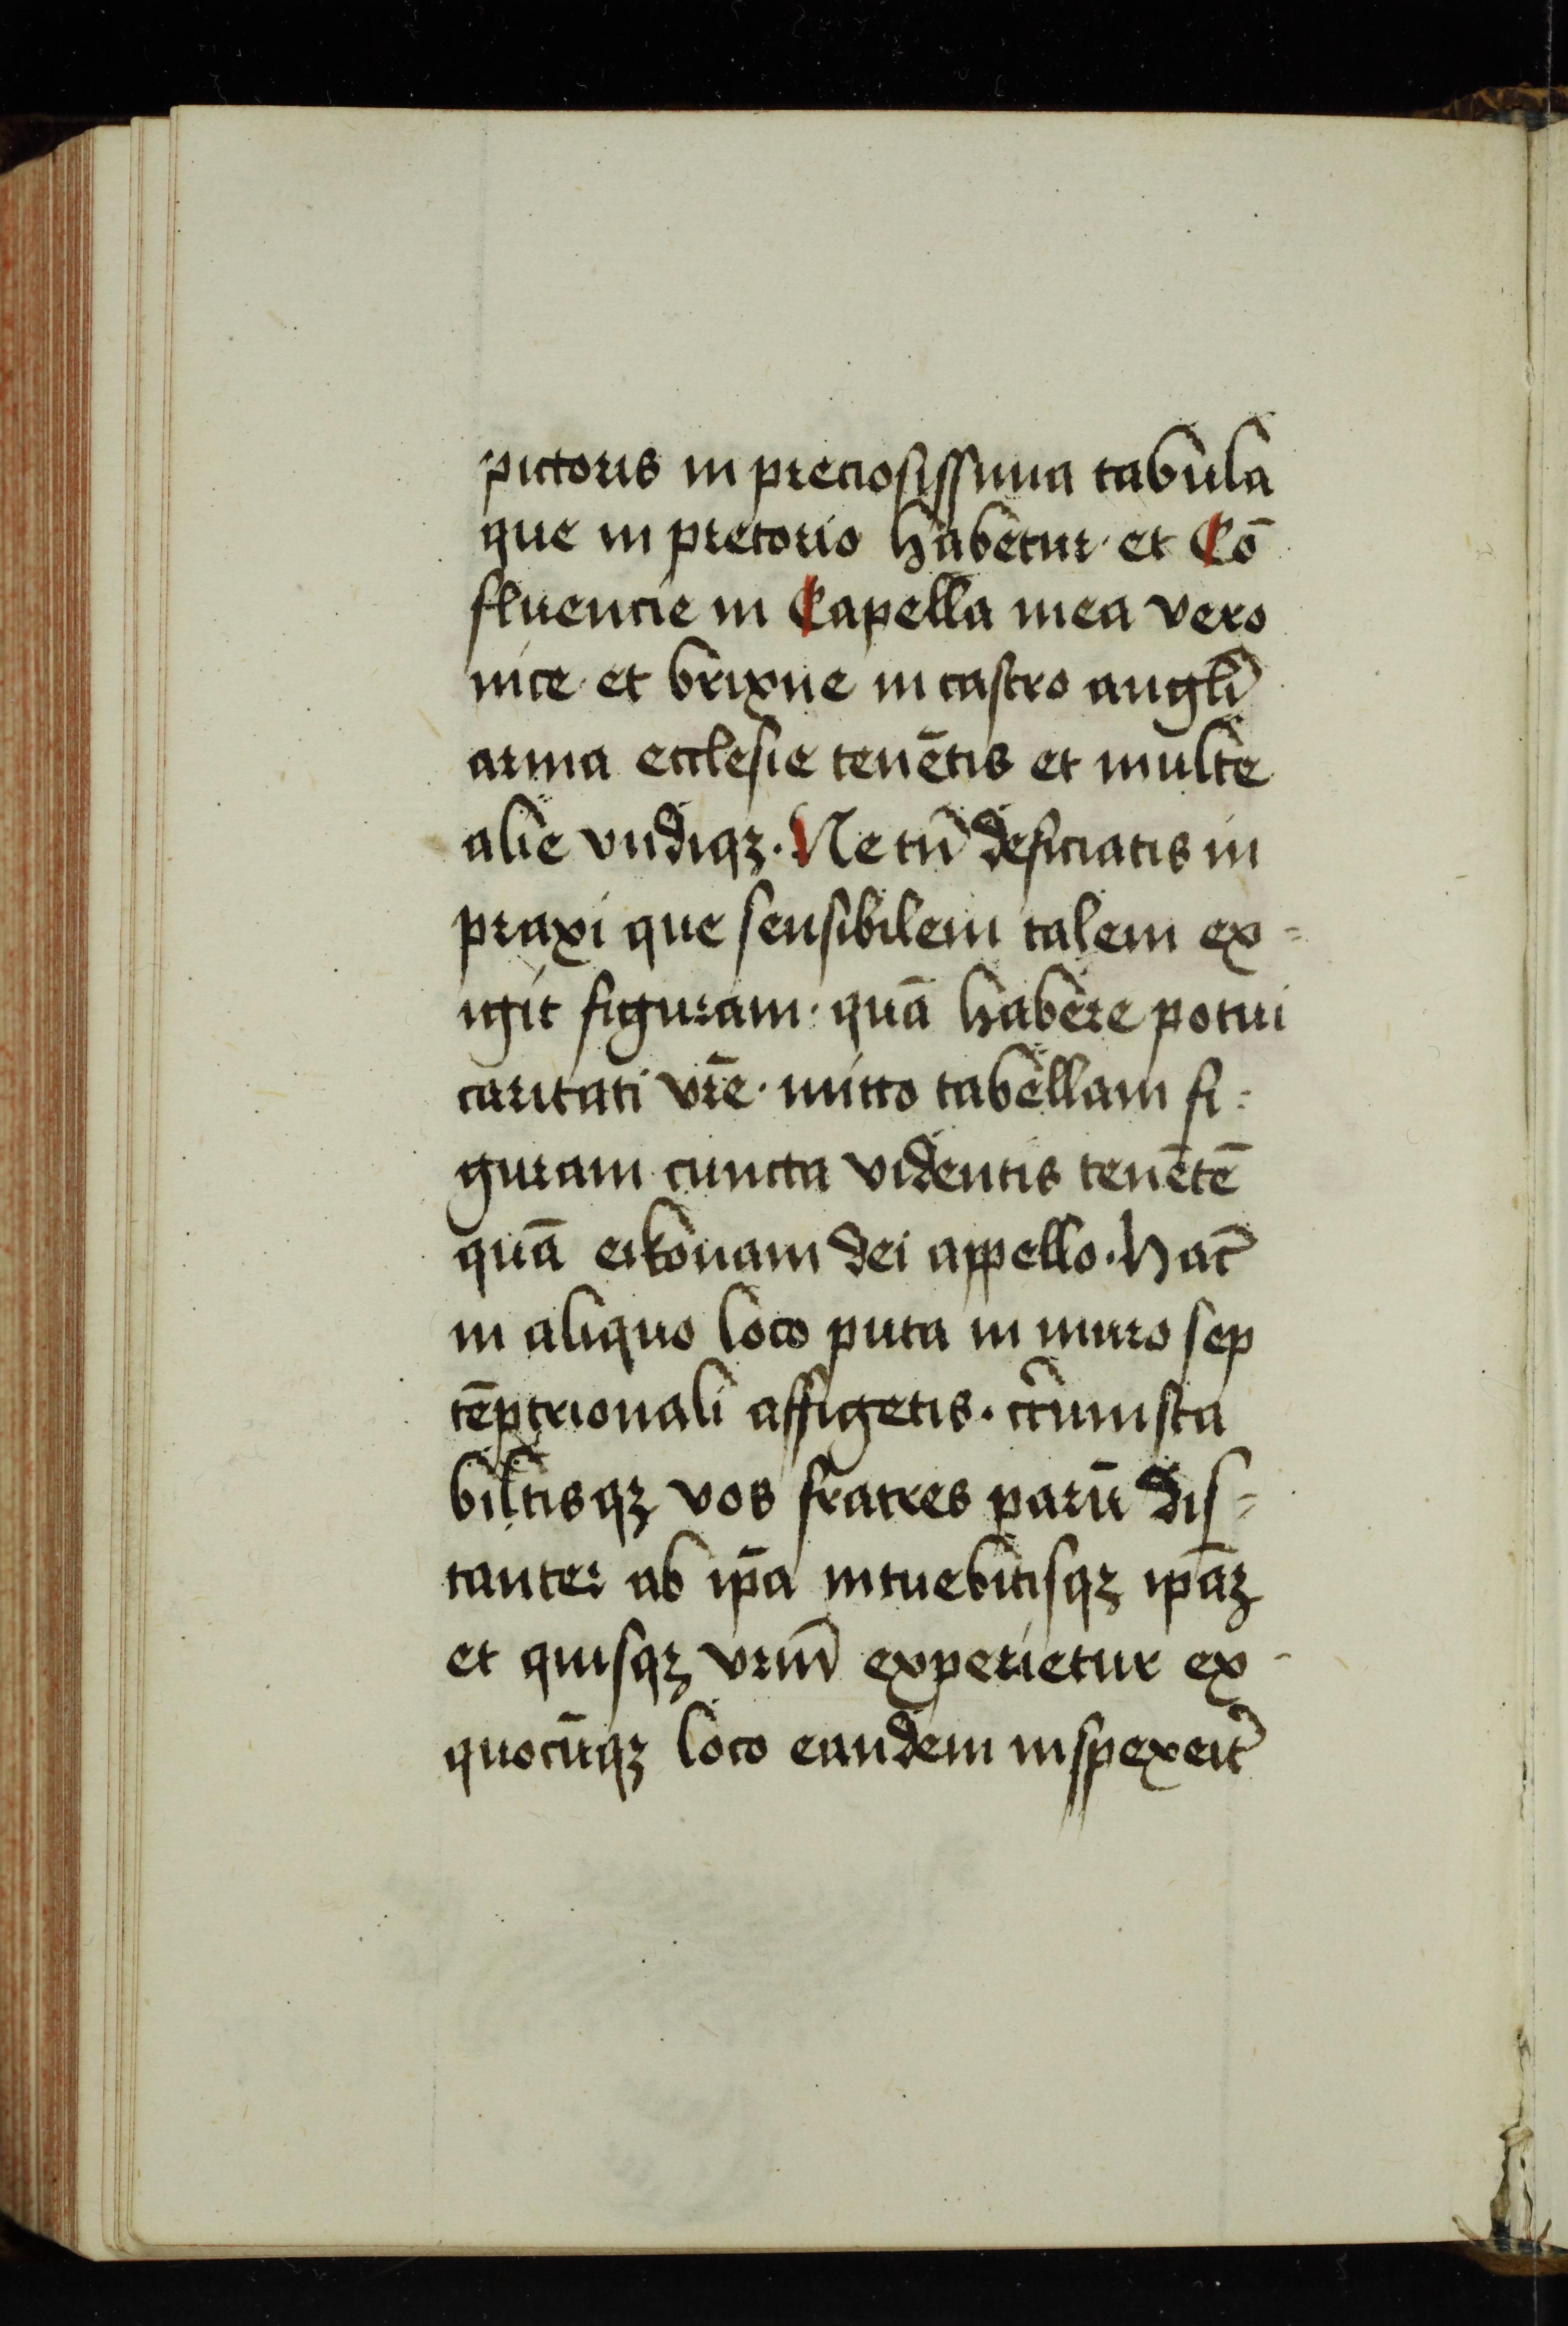 pictoris in preciosissima tabula
que in pretorio habetur· et Cō
fluencie in Capella mea vero
nice· et brixne in castro angli᷑
arma ecclesie tenētis et multe
alie vndiqꝫ. Ne tn̄ deficiatis in
praxi que sensibilem talem ex=
igit figuram· quā habere potui
caritati vr̄e· mitto tabellam fi=
guram cuncta videntis tenētē
quā eikonam dei appello. Hac̄
in aliquo loco puta in muro sep
tēptrionali affigetis. cr̄cumsta
bitisqꝫ vos fratres parū dis=
tanter ab ip̄a intuebitisqꝫ ip̄aꝫ
et quisqꝫ vrm̄ experietur ex-
quocūqꝫ loco eandem inspexeit᷑